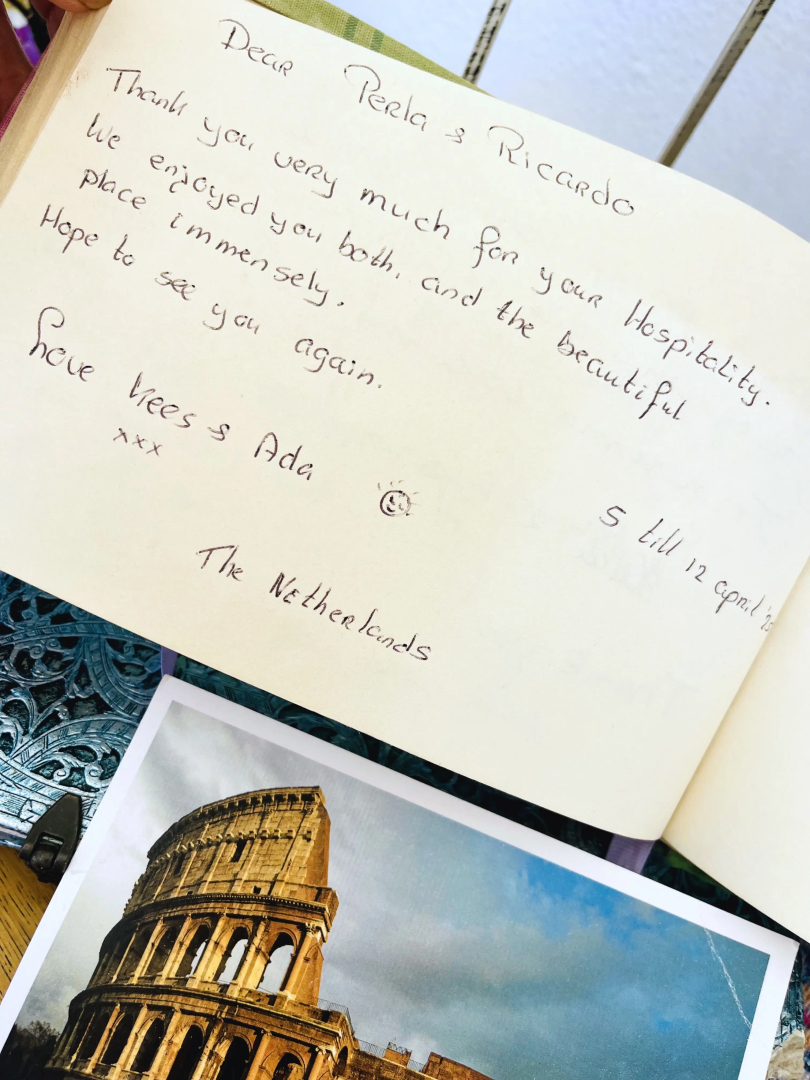 Dear Perla & Ricardo
Thank you very much for your Hospitality.
We enjoyed you both, and the beautiful
place immensely.
Hope to see you again.
Love Kees & Ada
xxx
5 till 12 april
The Netherlands